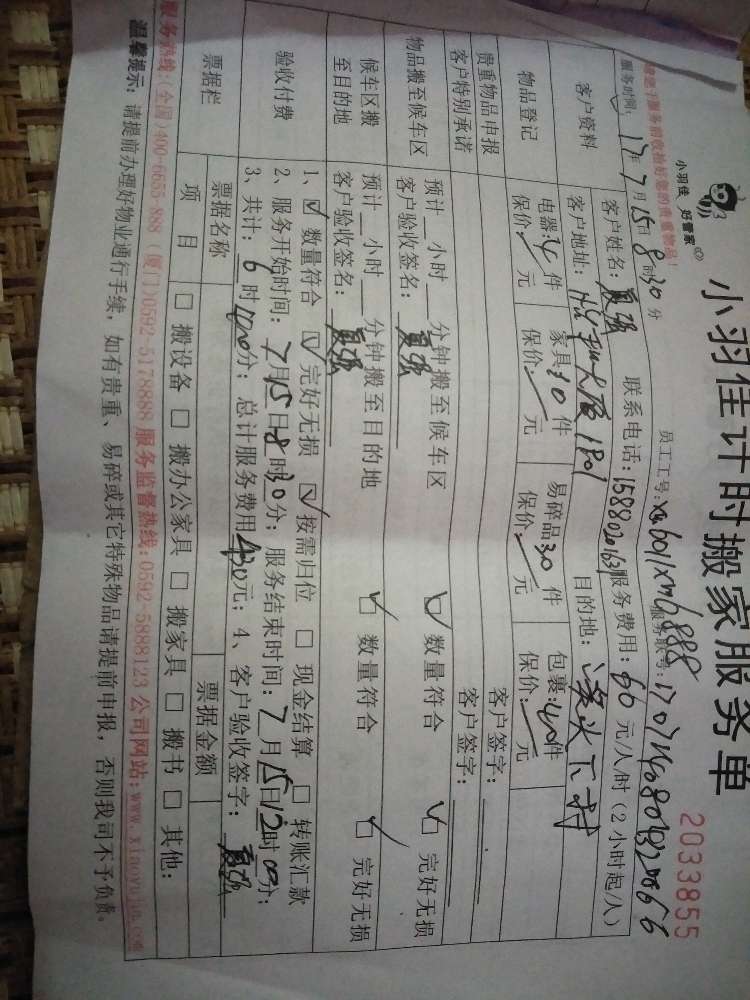 小羽佳 好管家
小羽佳计时搬家服务单
2033855
请您于服务前收拾好您的贵重物品!
员工工号: 服务联号:
服务时间: 17年7月15日8时30分
客户资料 客户姓名: 夏强 联系电话: 服务费用: 60元/人/时(2小时起/人)
客户地址: 目的地:
物品登记 电器: 4件 家具30件 易碎品30件 包裹:40件
保价: 元 保价: 元 保价: 元 保价: 元
贵重物品申报 客户签字:
客户特别承诺 客户签字:
物品搬至候车区 预计 小时 分钟搬至候车区 ☑ 数量符合 ☑ 完好无损
客户验收签名: 夏强
候车区搬至目的地 预计 小时 分钟搬至目的地 ☑ 数量符合 ☑ 完好无损
客户验收签名: 夏强
验收付费 1、☑ 数量符合 ☑ 完好无损 ☑ 按需归位 □ 现金结算 □ 转账汇款
2、服务开始时间: 7月15日8时30分; 服务结束时间: 7月15日12时00分;
3、共计: 6时 分; 总计服务费用 元; 4、客户验收签字: 夏强
票据栏 票据名称 票据金额
项目 □ 搬设备 □ 搬办公家具 □ 搬家具 □ 搬书 □ 其他:
服务热线:(全国)400-6655-888 (厦门)0592-5178888 服务监督热线:0592-5888123 公司网站:www.xiaoyujia.com
温馨提示: 请提前办理好物业通行手续, 如有贵重、易碎或其它特殊物品请提前申报, 否则我司不予负责。